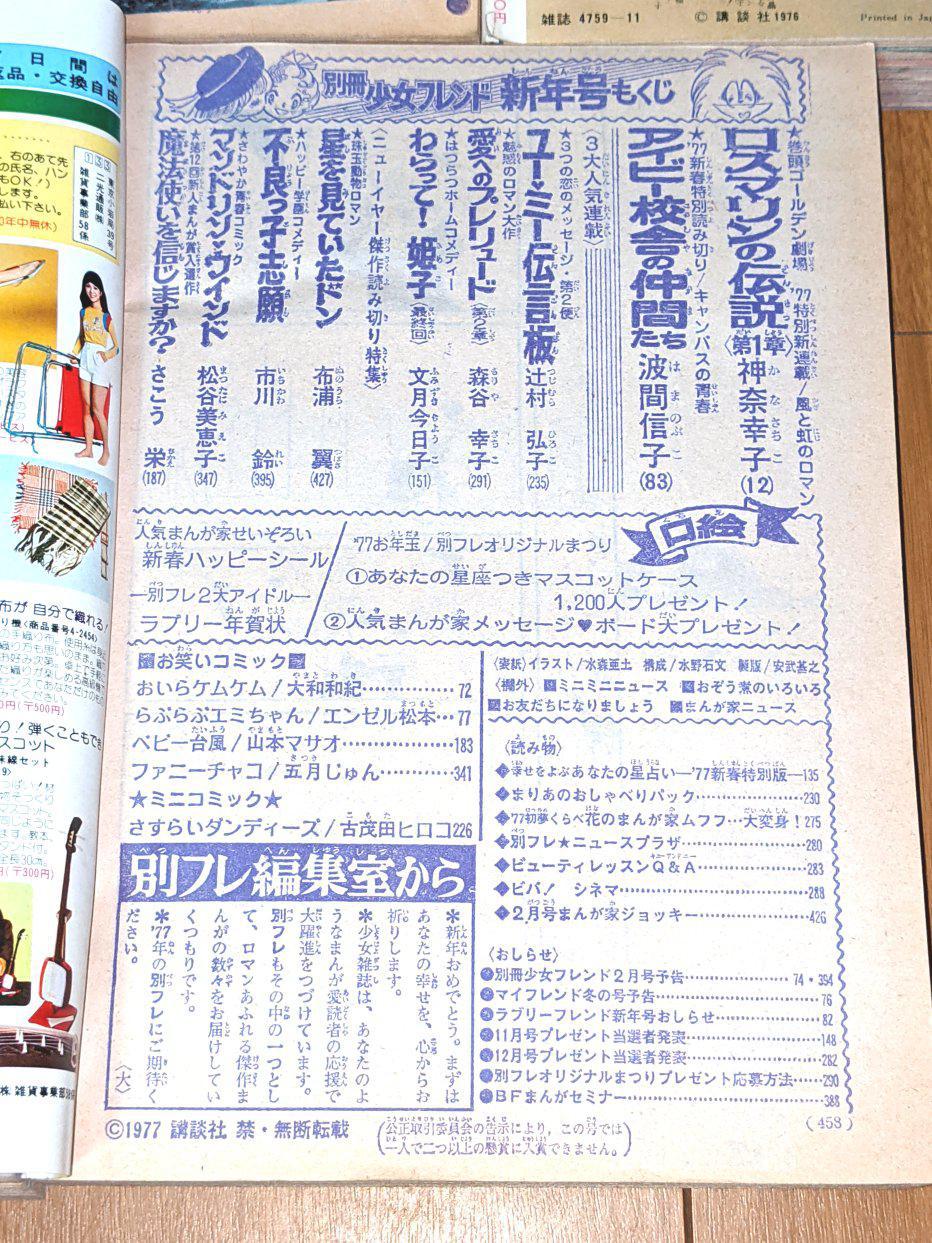 雑誌 4759-11
© 講談社 1976
Printed in Jap
日間は
返品・交換自由
右のあて先
の氏名、ハン
もOK！)
します。
払い下さい。
年中無休)
雑貨事業部58係
布が自分で織れる！
り機〈商品番号4-2454〉
円(〒500円)
り！弾くこともでき
スコット
味線セット
全長30cm。
円(〒300円)
株 雑貨事業部58
別冊少女フレンド 新年号もくじ
★巻頭ゴールデン劇場 '77特別新連載/風と虹のロマン
ロスマリンの伝説〈第1章〉 神奈幸子 (12)
★'77新春特別読み切り/キャンパスの青春
アイビー校舎の仲間たち 波間信子 (83)
〈3大人気連載〉
★3つの恋のメッセージ・第2便
ユーミー伝言板 辻村 弘子 (235)
★魅惑のロマン大作
愛へのプレリュード〈第2章〉 森谷 幸子 (291)
★はつらつホームコメディー
わらって！姫子〈最終回〉 文月今日子 (151)
〈ニューイヤー傑作読み切り特集〉
★珠玉動物ロマン
星を見ていたドン 布浦 翼 (427)
★ハッピー学園コメディー
不良っ子志願 市川 鈴 (395)
★さわやか青春コミック
マンドリン・ウインド 松谷美恵子 (347)
★第12回新人まんが賞入選作
魔法使いを信じますか？ さこう 栄 (187)
口絵
人気まんが家せいぞろい
新春ハッピーシール
―別フレ2大アイドル―
ラブリー年賀状
'77お年玉/別フレオリジナルまつり
①あなたの星座つきマスコットケース
1,200人プレゼント！
②人気まんが家メッセージ♥ボード大プレゼント！
お笑いコミック
おいらケムケム/大和和紀…………72
らぶらぶエミちゃん/エンゼル松本…77
ベビー台風/山本マサオ……………183
ファニーチャコ/五月じゅん………341
★ミニコミック★
さすらいダンディーズ/古茂田ヒロコ226
〈表紙〉イラスト/水森亜土 構成/水野石文 製版/安武基之
〈欄外〉ミニミニニュース おぞう煮のいろいろ
お友だちになりましょう まんが家ニュース
〈読み物〉
◆幸せをよぶあなたの星占い―'77新春特別版―135
◆まりあのおしゃべりパック…………230
◆'77初夢くらべ花のまんが家ムフフ…大変身！275
◆別フレ★ニュースプラザ…………280
◆ビューティレッスンQ&A…………283
◆ビバ！ シネマ…………288
◆2月号まんが家ジョッキー…………426
〈おしらせ〉
別冊少女フレンド2月号予告…………74・394
マイフレンド冬の号予告…………76
ラブリーフレンド新年号おしらせ…………82
11月号プレゼント当選者発表…………148
12月号プレゼント当選者発表…………282
別フレオリジナルまつりプレゼント応募方法……290
BFまんがセミナー…………388
別フレ編集室から
＊新年おめでとう。まずは
あなたの幸せを、心からお
祈りします。
＊少女雑誌は、あなたのよ
うなまんが愛読者の応援で
大躍進をつづけています。
別フレもその中の一つとし
て、ロマンあふれる傑作ま
んがの数々をお届けしてい
くつもりです。
＊'77年の別フレにご期待く
ださい。
〈大〉
©1977 講談社 禁・無断転載
(公正取引委員会の告示により、この号では
一人で二つ以上の懸賞に入賞できません。)
(458)